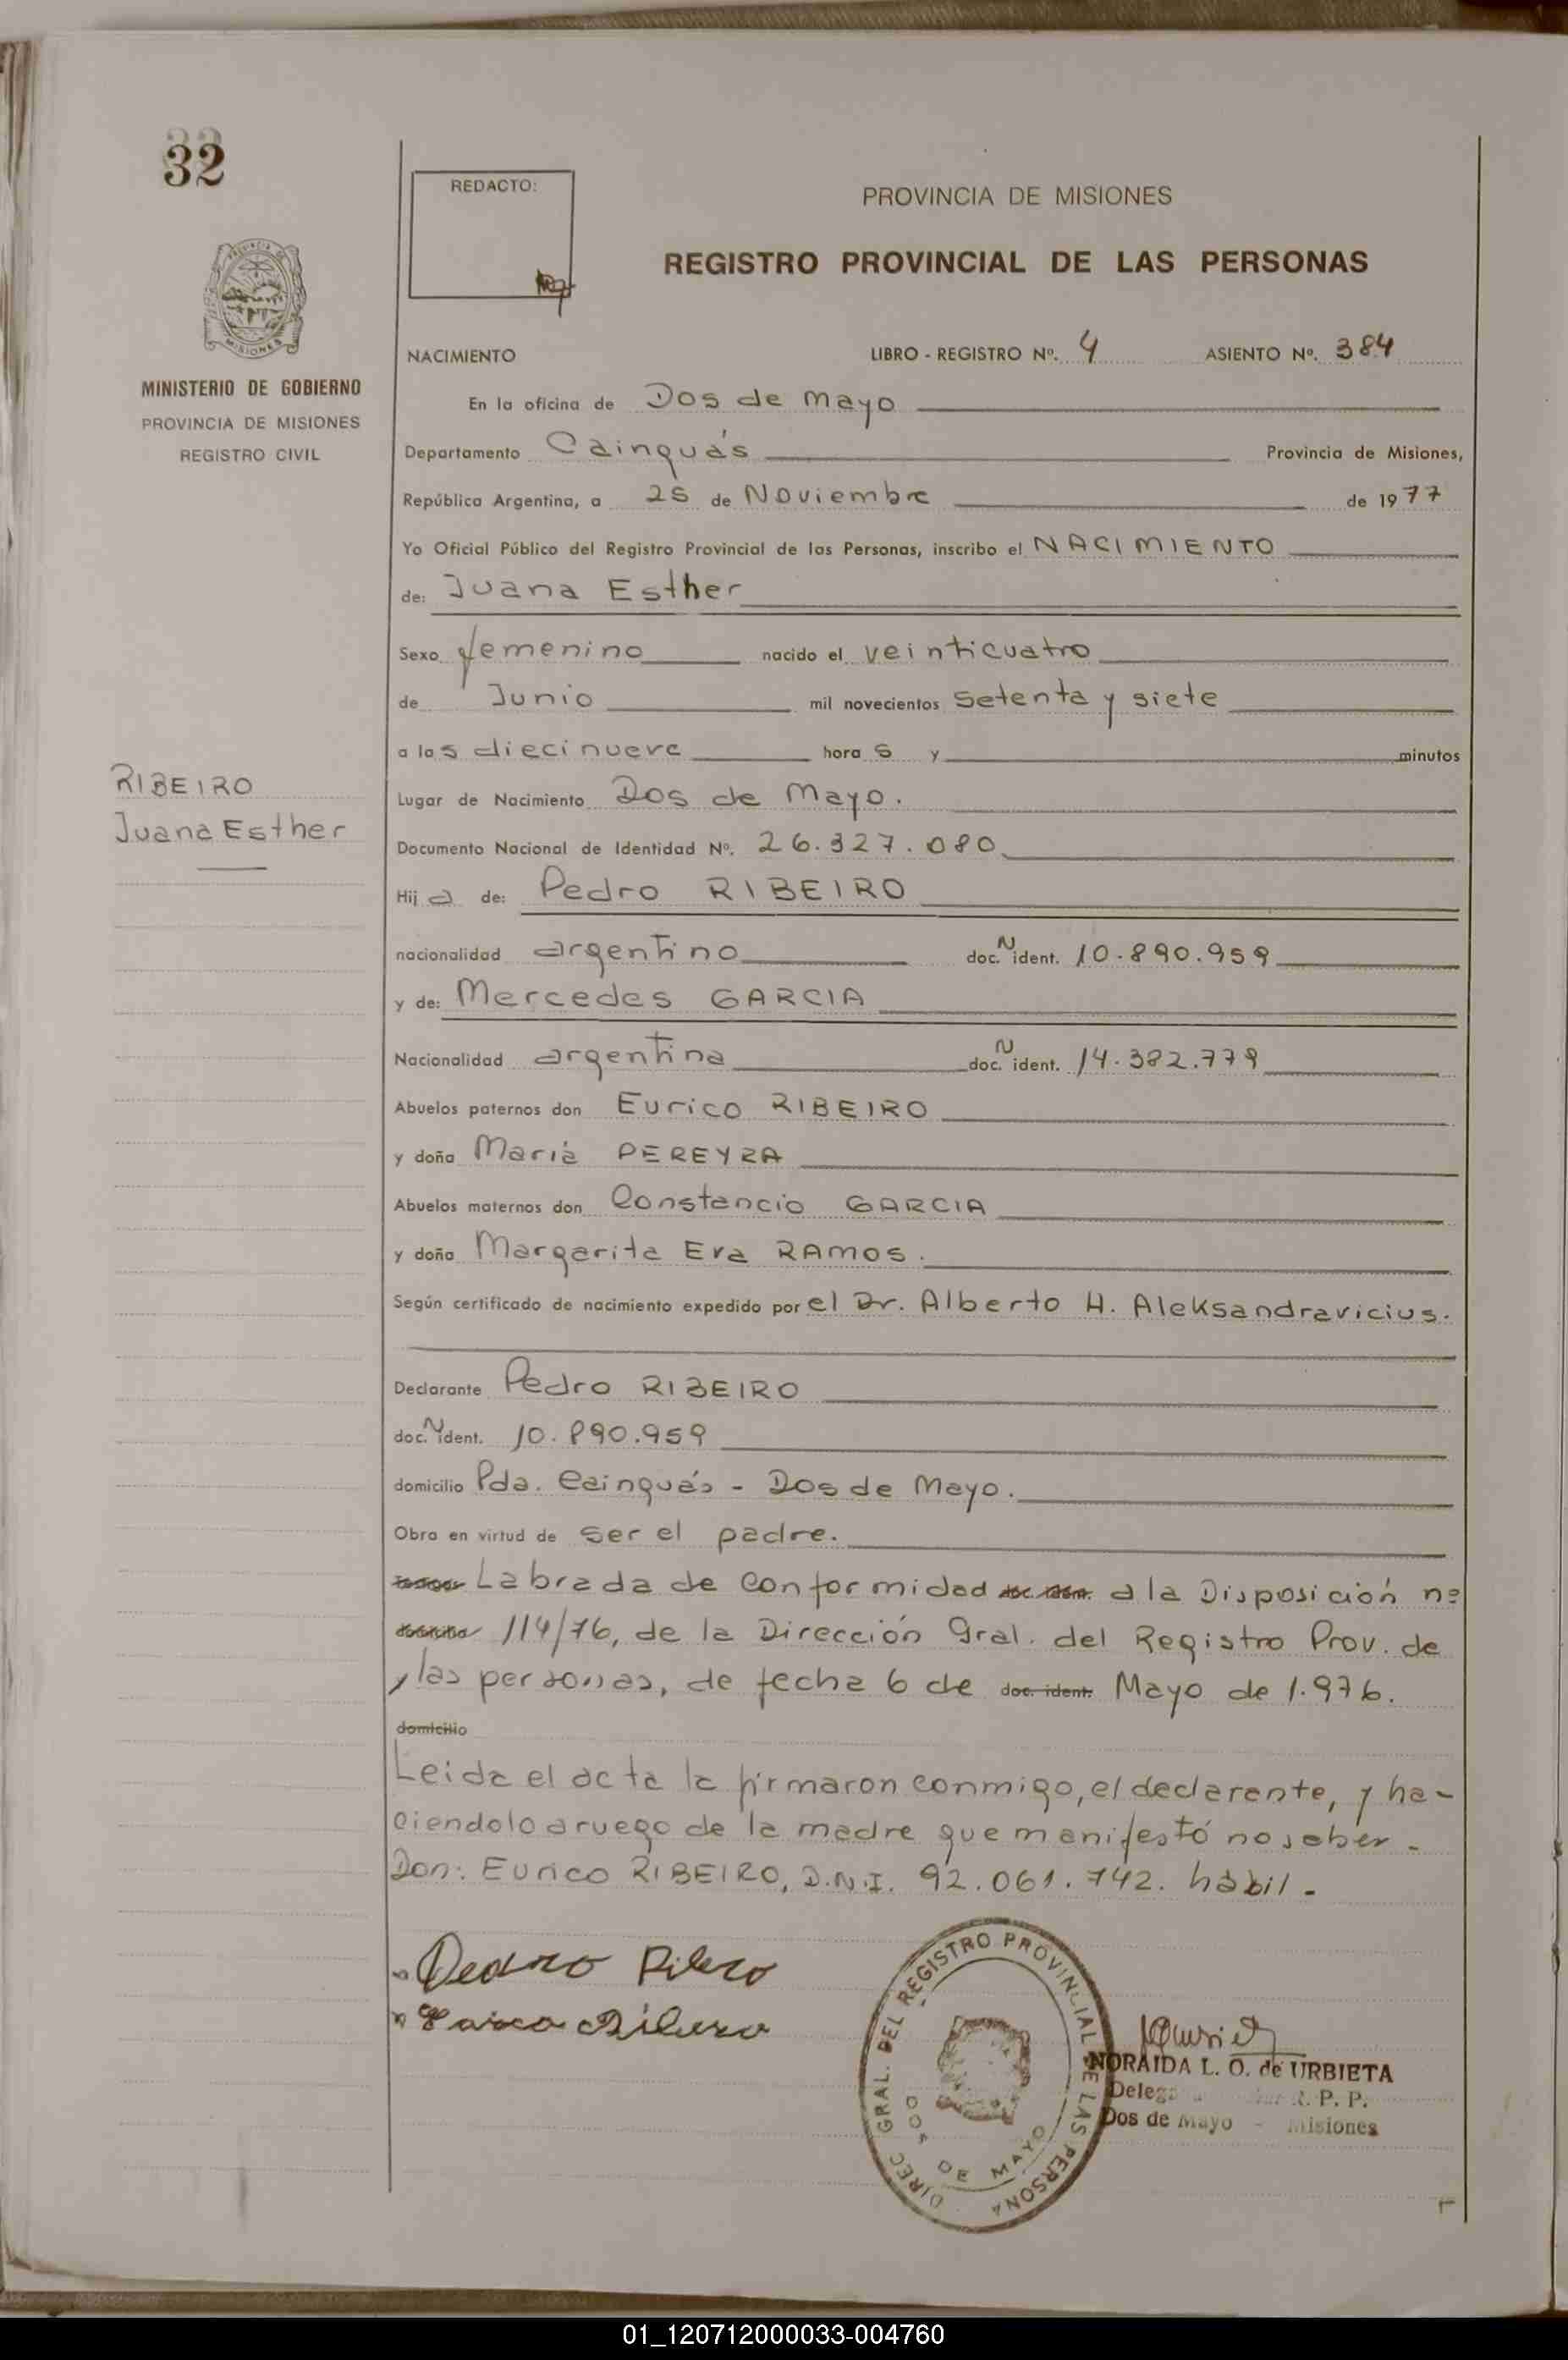 32
REDACTO:
PROVINCIA DE MISIONES
REGISTRO PROVINCIAL DE LAS PERSONAS
MISIONES
MINISTERIO DE GOBIERNO
PROVINCIA DE MISIONES
REGISTRO CIVIL
NACIMIENTO LIBRO - REGISTRO Nº. 4 ASIENTO Nº. 384
En la oficina de Dos de Mayo
Departamento Cainguás Provincia de Misiones,
República Argentina, a 25 de Noviembre de 1977
Yo Oficial Público del Registro Provincial de las Personas, inscribo el NACIMIENTO
de: Juana Esther
Sexo femenino nacido el veinticuatro
de Junio mil novecientos setenta y siete
a las diecinueve horas y minutos
RIBEIRO
Juana Esther
Lugar de Nacimiento Dos de Mayo.
Documento Nacional de Identidad Nº. 26.327.080
Hija de: Pedro RIBEIRO
nacionalidad argentino doc. N ident. 10.890.959
y de: Mercedes GARCIA
Nacionalidad argentina doc. N ident. 14.382.779
Abuelos paternos don Eurico RIBEIRO
y doña María PEREYRA
Abuelos maternos don Constancio GARCIA
y doña Margarita Eva RAMOS.
Según certificado de nacimiento expedido por el Dr. Alberto H. Aleksandravicius.
Declarante Pedro RIBEIRO
doc. N ident. 10.890.959
domicilio Pda. Cainguás - Dos de Mayo.
Obra en virtud de ser el padre.
Labrada de conformidad a la Disposición nº
114/76, de la Dirección Gral. del Registro Prov. de
las personas, de fecha 6 de doc. ident. Mayo de 1.976.
domicilio
Leida el acta la firmaron conmigo, el declarante, y ha-
ciendolo a ruego de la madre que manifestó no saber.
Don: Eurico RIBEIRO, D.N.I. 92.061.742. hábil.
DIREC GRAL. DEL REGISTRO PROVINCIAL DE LAS PERSONA
DOS DE MAYO
NORAIDA L. O. de URBIETA
R. P. P.
Dos de Mayo - Misiones
01_120712000033-004760